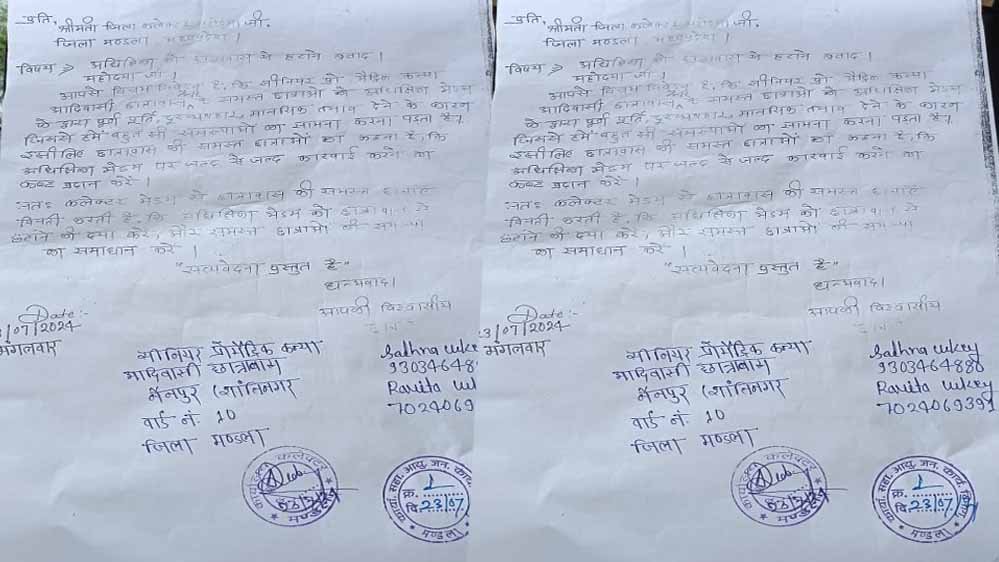 प्रति,
श्रीमती जिला कलेक्टर महोदया जी,
जिला मण्डला मध्यप्रदेश।
विषय अधिक्षिका को छात्रावास से हटाने बवाद।
महोदया जी।
आपसे विनम्र निवेदन है, कि सीनियर प्री मैट्रिक कन्या
आदिवासी छात्रावास के समस्त छात्राओं को अधिक्षिका मेडम
के द्वारा पूर्ण दुरव्यवहार, मानसिक तनाव देने के कारण
जिससे हमें बहुत सी समस्याओं का सामना करना पड़ता है।
इसीलिए छात्रावास की समस्त छात्राओं का कहना है, कि
अधिक्षिका मेडम पर जल्द से जल्द कारवाई करने का
कष्ट प्रदान करें।
अतः कलेक्टर मेडम से छात्रावास की समस्त छात्राएं
विनती करती है, कि अधिक्षिका मेडम को छात्रावास से
हटाने की दया करे, और समस्त छात्राओं की समस्या
का समाधान करें।
"सत्यवेदना प्रस्तुत है"
धन्यवाद।
आपकी विश्वासीय
Date :-
3/07/2024
मंगलवार
सीनियर प्रीमैट्रिक कन्या
आदिवासी छात्रावास
मैनपुर (शांतिनगर
वार्ड नं. 10
जिला मण्डला
Sadhna uikey
930346488
Ravita ui
7024069
कार्यालय कलेक्टर
मण्डला
कार्या. सहा. आयु. जन. कार्य.
क्र. 1
दि. 23/07
मण्डला
प्रति,
श्रीमती जिला कलेक्टर महोदया जी,
जिला मण्डला मध्यप्रदेश।
विषय अधिक्षिका को छात्रावास से हटाने बवाद।
महोदया जी।
आपसे विनम्र निवेदन है, कि सीनियर प्री मैट्रिक कन्या
आदिवासी छात्रावास के समस्त छात्राओं को अधिक्षिका मेडम
के द्वारा पूर्ण दुरव्यवहार, मानसिक तनाव देने के कारण
जिससे हमें बहुत सी समस्याओं का सामना करना पड़ता है।
इसीलिए छात्रावास की समस्त छात्राओं का कहना है, कि
अधिक्षिका मेडम पर जल्द से जल्द कारवाई करने का
कष्ट प्रदान करें।
अतः कलेक्टर मेडम से छात्रावास की समस्त छात्राएं
विनती करती है, कि अधिक्षिका मेडम को छात्रावास से
हटाने की दया करे, और समस्त छात्राओं की समस्या
का समाधान करें।
"सत्यवेदना प्रस्तुत है"
धन्यवाद।
आपकी विश्वासीय
Date :-
3/07/2024
मंगलवार
सीनियर प्रीमैट्रिक कन्या
आदिवासी छात्रावास
मैनपुर (शांतिनगर
वार्ड नं. 10
जिला मण्डला
Sadhna uikey
9303464888
Ravita uikey
7024069391
कार्यालय कलेक्टर
मण्डला
कार्या. सहा. आयु. जन. कार्य. विभाग
क्र. 1
दि. 23/07
मण्डला